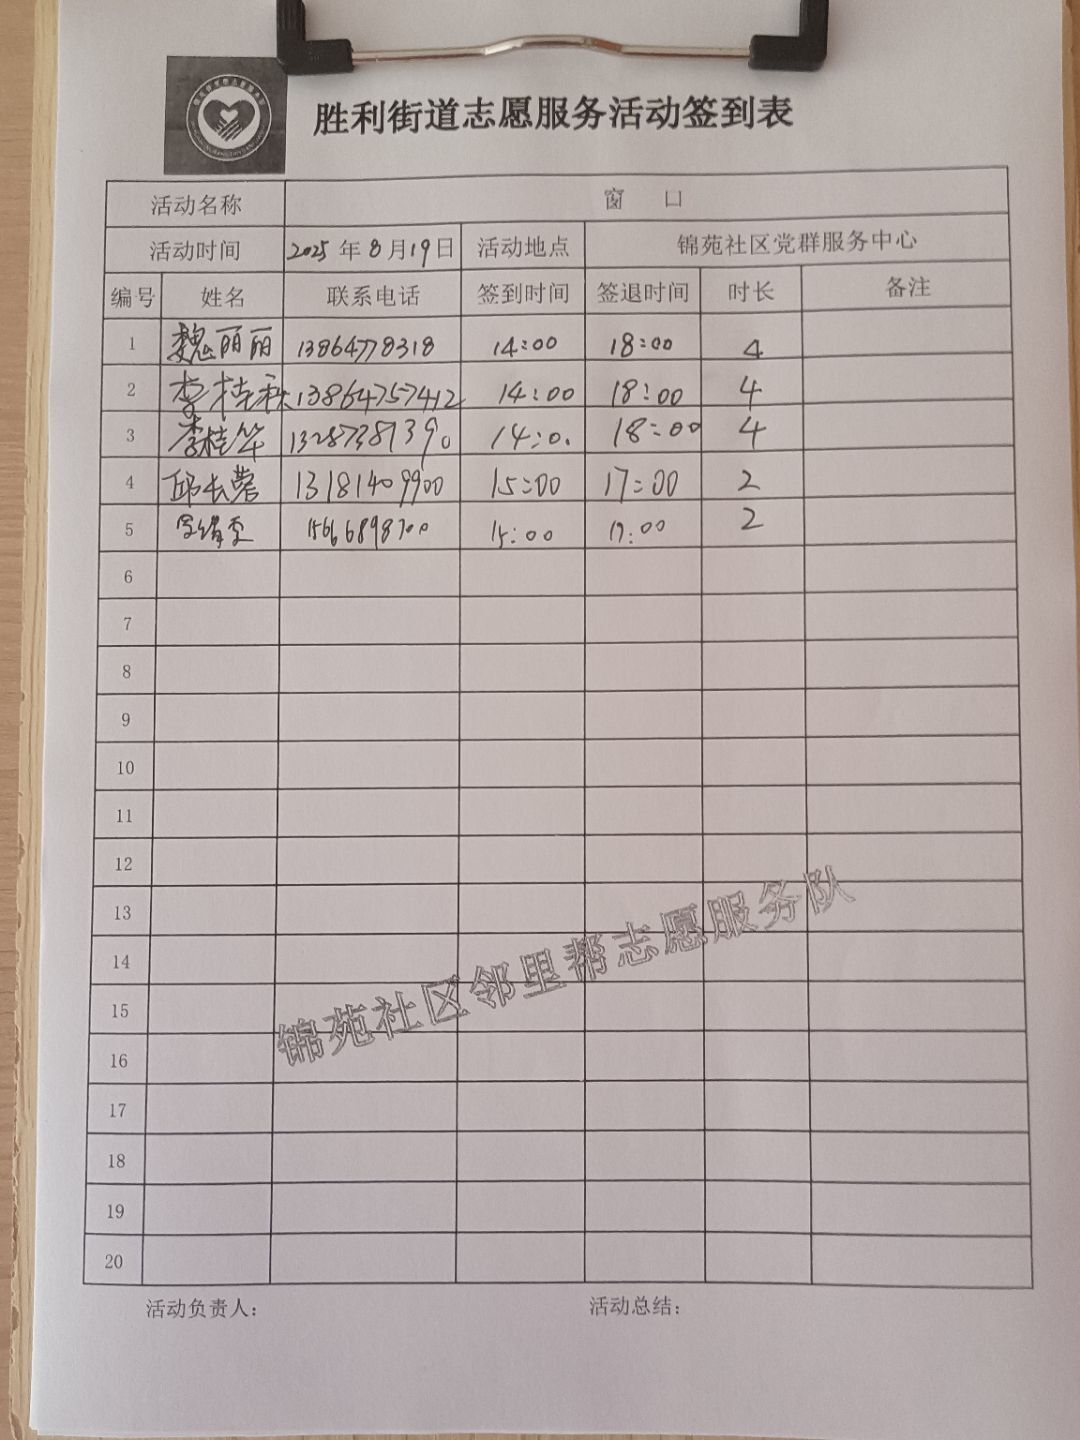 胜利街道志愿服务活动签到表
活动名称 窗 口
活动时间 2025年8月19日 活动地点 锦苑社区党群服务中心
编号 姓名 联系电话 签到时间 签退时间 时长 备注
1 魏丽丽 13864778318 14:00 18:00 4
2 李桂秋 13864757412 14:00 18:00 4
3 李桂华 13287381390 14:0. 18:00 4
4 邱长蓉 13181409900 15:00 17:00 2
5 15666898700 15:00 17:00 2
6
7
8
9
10
11
12
13
14
15
16
17
18
19
20
锦苑社区邻里帮志愿服务队
活动负责人： 活动总结：